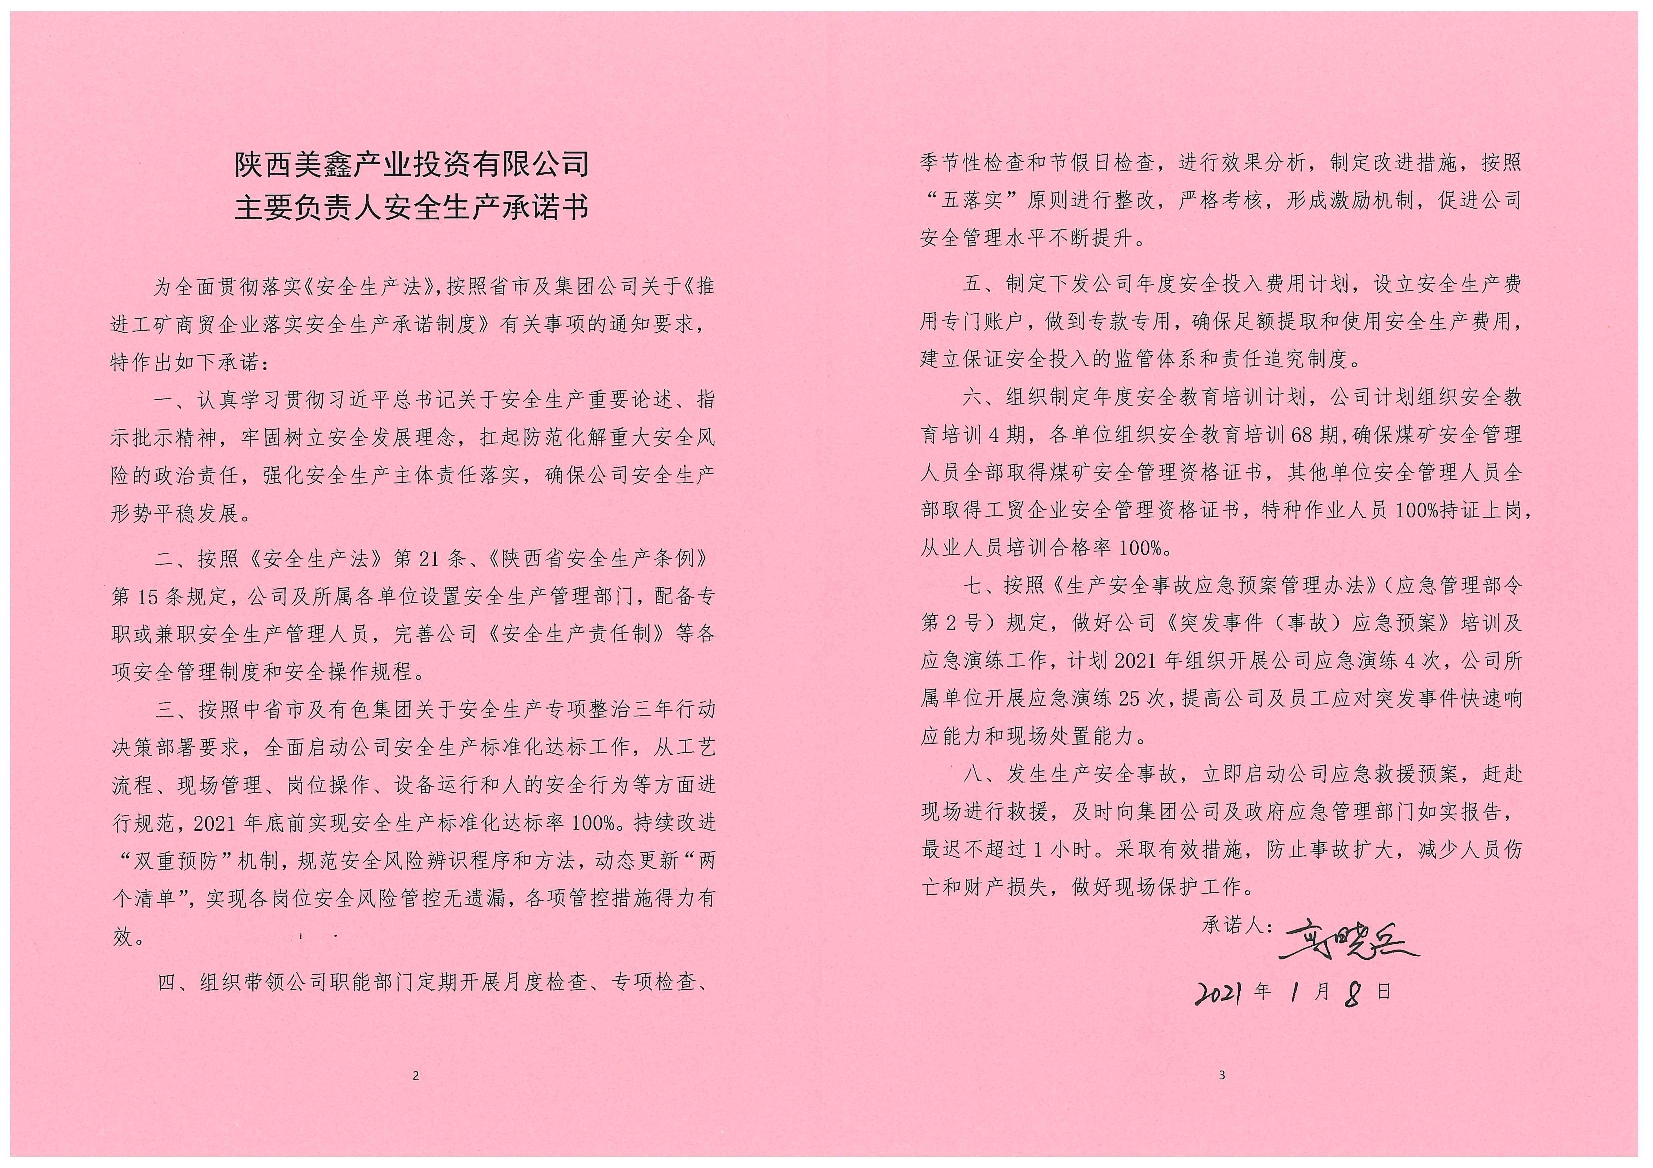 陕西美鑫产业投资有限公司
主要负责人安全生产承诺书
为全面贯彻落实《安全生产法》,按照省市及集团公司关于《推
进工矿商贸企业落实安全生产承诺制度》有关事项的通知要求，
特作出如下承诺：
一、认真学习贯彻习近平总书记关于安全生产重要论述、指
示批示精神，牢固树立安全发展理念，扛起防范化解重大安全风
险的政治责任，强化安全生产主体责任落实，确保公司安全生产
形势平稳发展。
二、按照《安全生产法》第21条、《陕西省安全生产条例》
第15条规定，公司及所属各单位设置安全生产管理部门，配备专
职或兼职安全生产管理人员，完善公司《安全生产责任制》等各
项安全管理制度和安全操作规程。
三、按照中省市及有色集团关于安全生产专项整治三年行动
决策部署要求，全面启动公司安全生产标准化达标工作，从工艺
流程、现场管理、岗位操作、设备运行和人的安全行为等方面进
行规范，2021年底前实现安全生产标准化达标率100%。持续改进
“双重预防”机制，规范安全风险辨识程序和方法，动态更新“两
个清单”，实现各岗位安全风险管控无遗漏，各项管控措施得力有
效。
四、组织带领公司职能部门定期开展月度检查、专项检查、
2
季节性检查和节假日检查，进行效果分析，制定改进措施，按照
“五落实”原则进行整改，严格考核，形成激励机制，促进公司
安全管理水平不断提升。
五、制定下发公司年度安全投入费用计划，设立安全生产费
用专门账户，做到专款专用，确保足额提取和使用安全生产费用，
建立保证安全投入的监管体系和责任追究制度。
六、组织制定年度安全教育培训计划，公司计划组织安全教
育培训4期，各单位组织安全教育培训68期,确保煤矿安全管理
人员全部取得煤矿安全管理资格证书，其他单位安全管理人员全
部取得工贸企业安全管理资格证书，特种作业人员100%持证上岗，
从业人员培训合格率100%。
七、按照《生产安全事故应急预案管理办法》（应急管理部令
第2号）规定，做好公司《突发事件（事故）应急预案》培训及
应急演练工作，计划2021年组织开展公司应急演练4次，公司所
属单位开展应急演练25次，提高公司及员工应对突发事件快速响
应能力和现场处置能力。
八、发生生产安全事故，立即启动公司应急救援预案，赶赴
现场进行救援，及时向集团公司及政府应急管理部门如实报告，
最迟不超过1小时。采取有效措施，防止事故扩大，减少人员伤
亡和财产损失，做好现场保护工作。
承诺人：
2021年1月8日
3